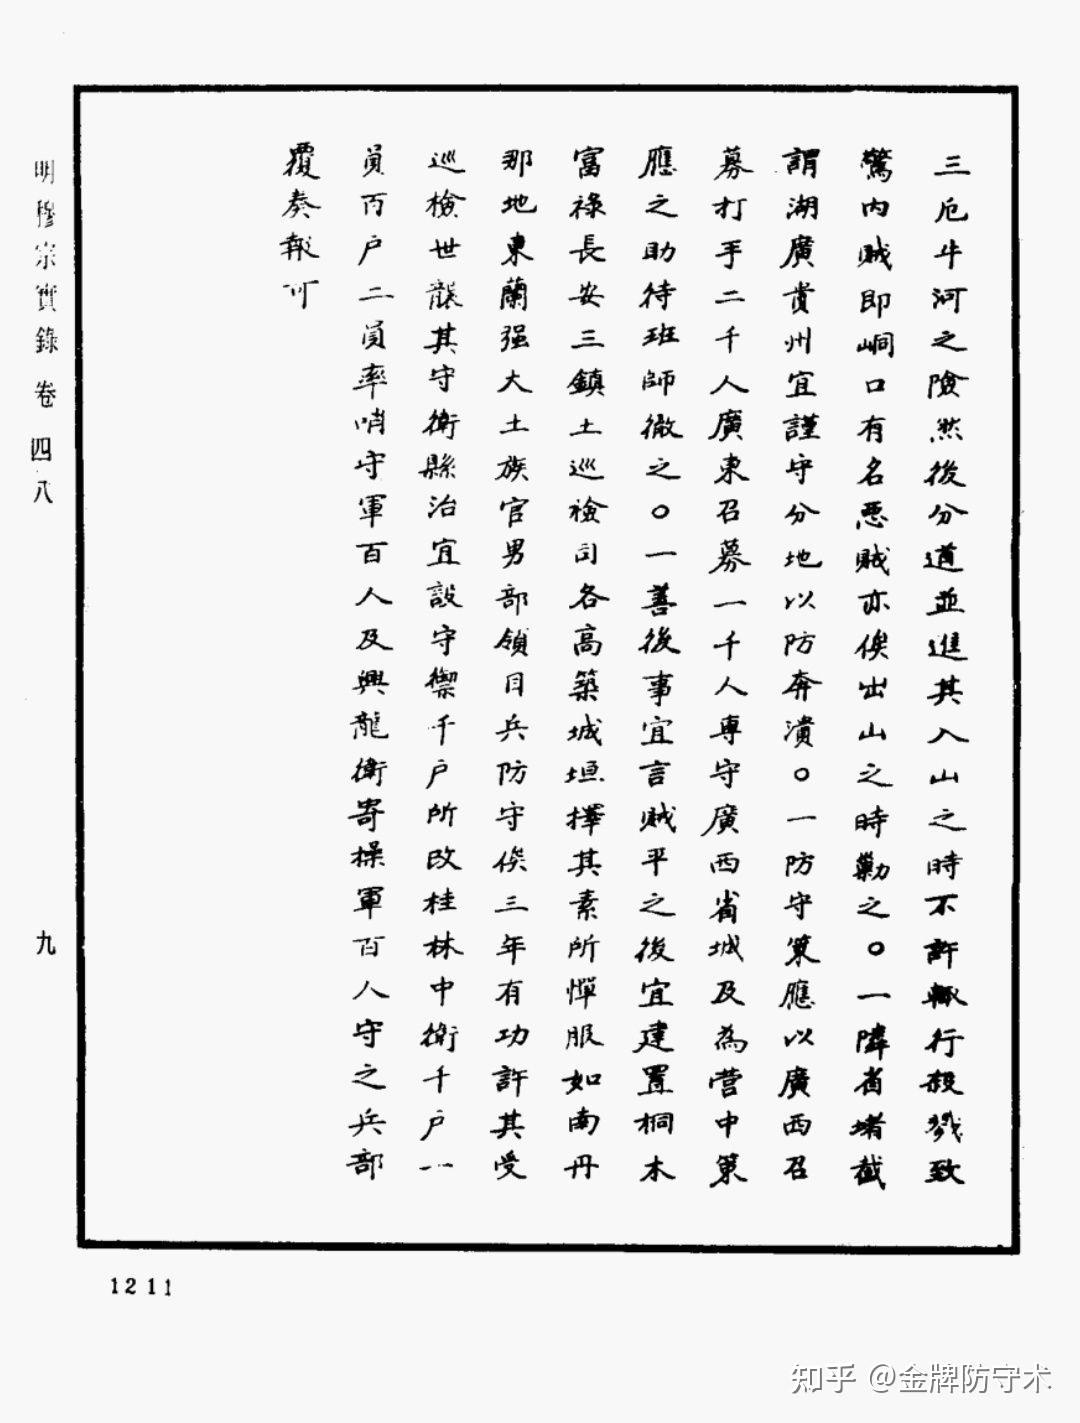 三厄斗河之險然後分道並進其入山之時不許輙行殺戮致
驚內賊即峒口有名惡賊亦俟出山之時勦之〇一隣省堵截
謂湖廣貴州宜謹守分地以防奔潰〇一防守策應以廣西召
募打手二千人廣東召募一千人專守廣西省城及為营中策
應之助待班師徹之〇一善後事宜言賊平之後宜建置桐木
富祿長安三鎮土巡檢司各高築城垣擇其素所憚服如南丹
那地東蘭强大土族官男部領目兵防守俟三年有功許其受
巡檢世襲其守衛縣治宜設守禦千戶所改桂林中衛千戶一
員百戶二員率哨守軍百人及興龍衛寄操軍百人守之兵部
覆奏報可
明穆宗實錄 卷四八
九
1211
知乎 @金牌防守术